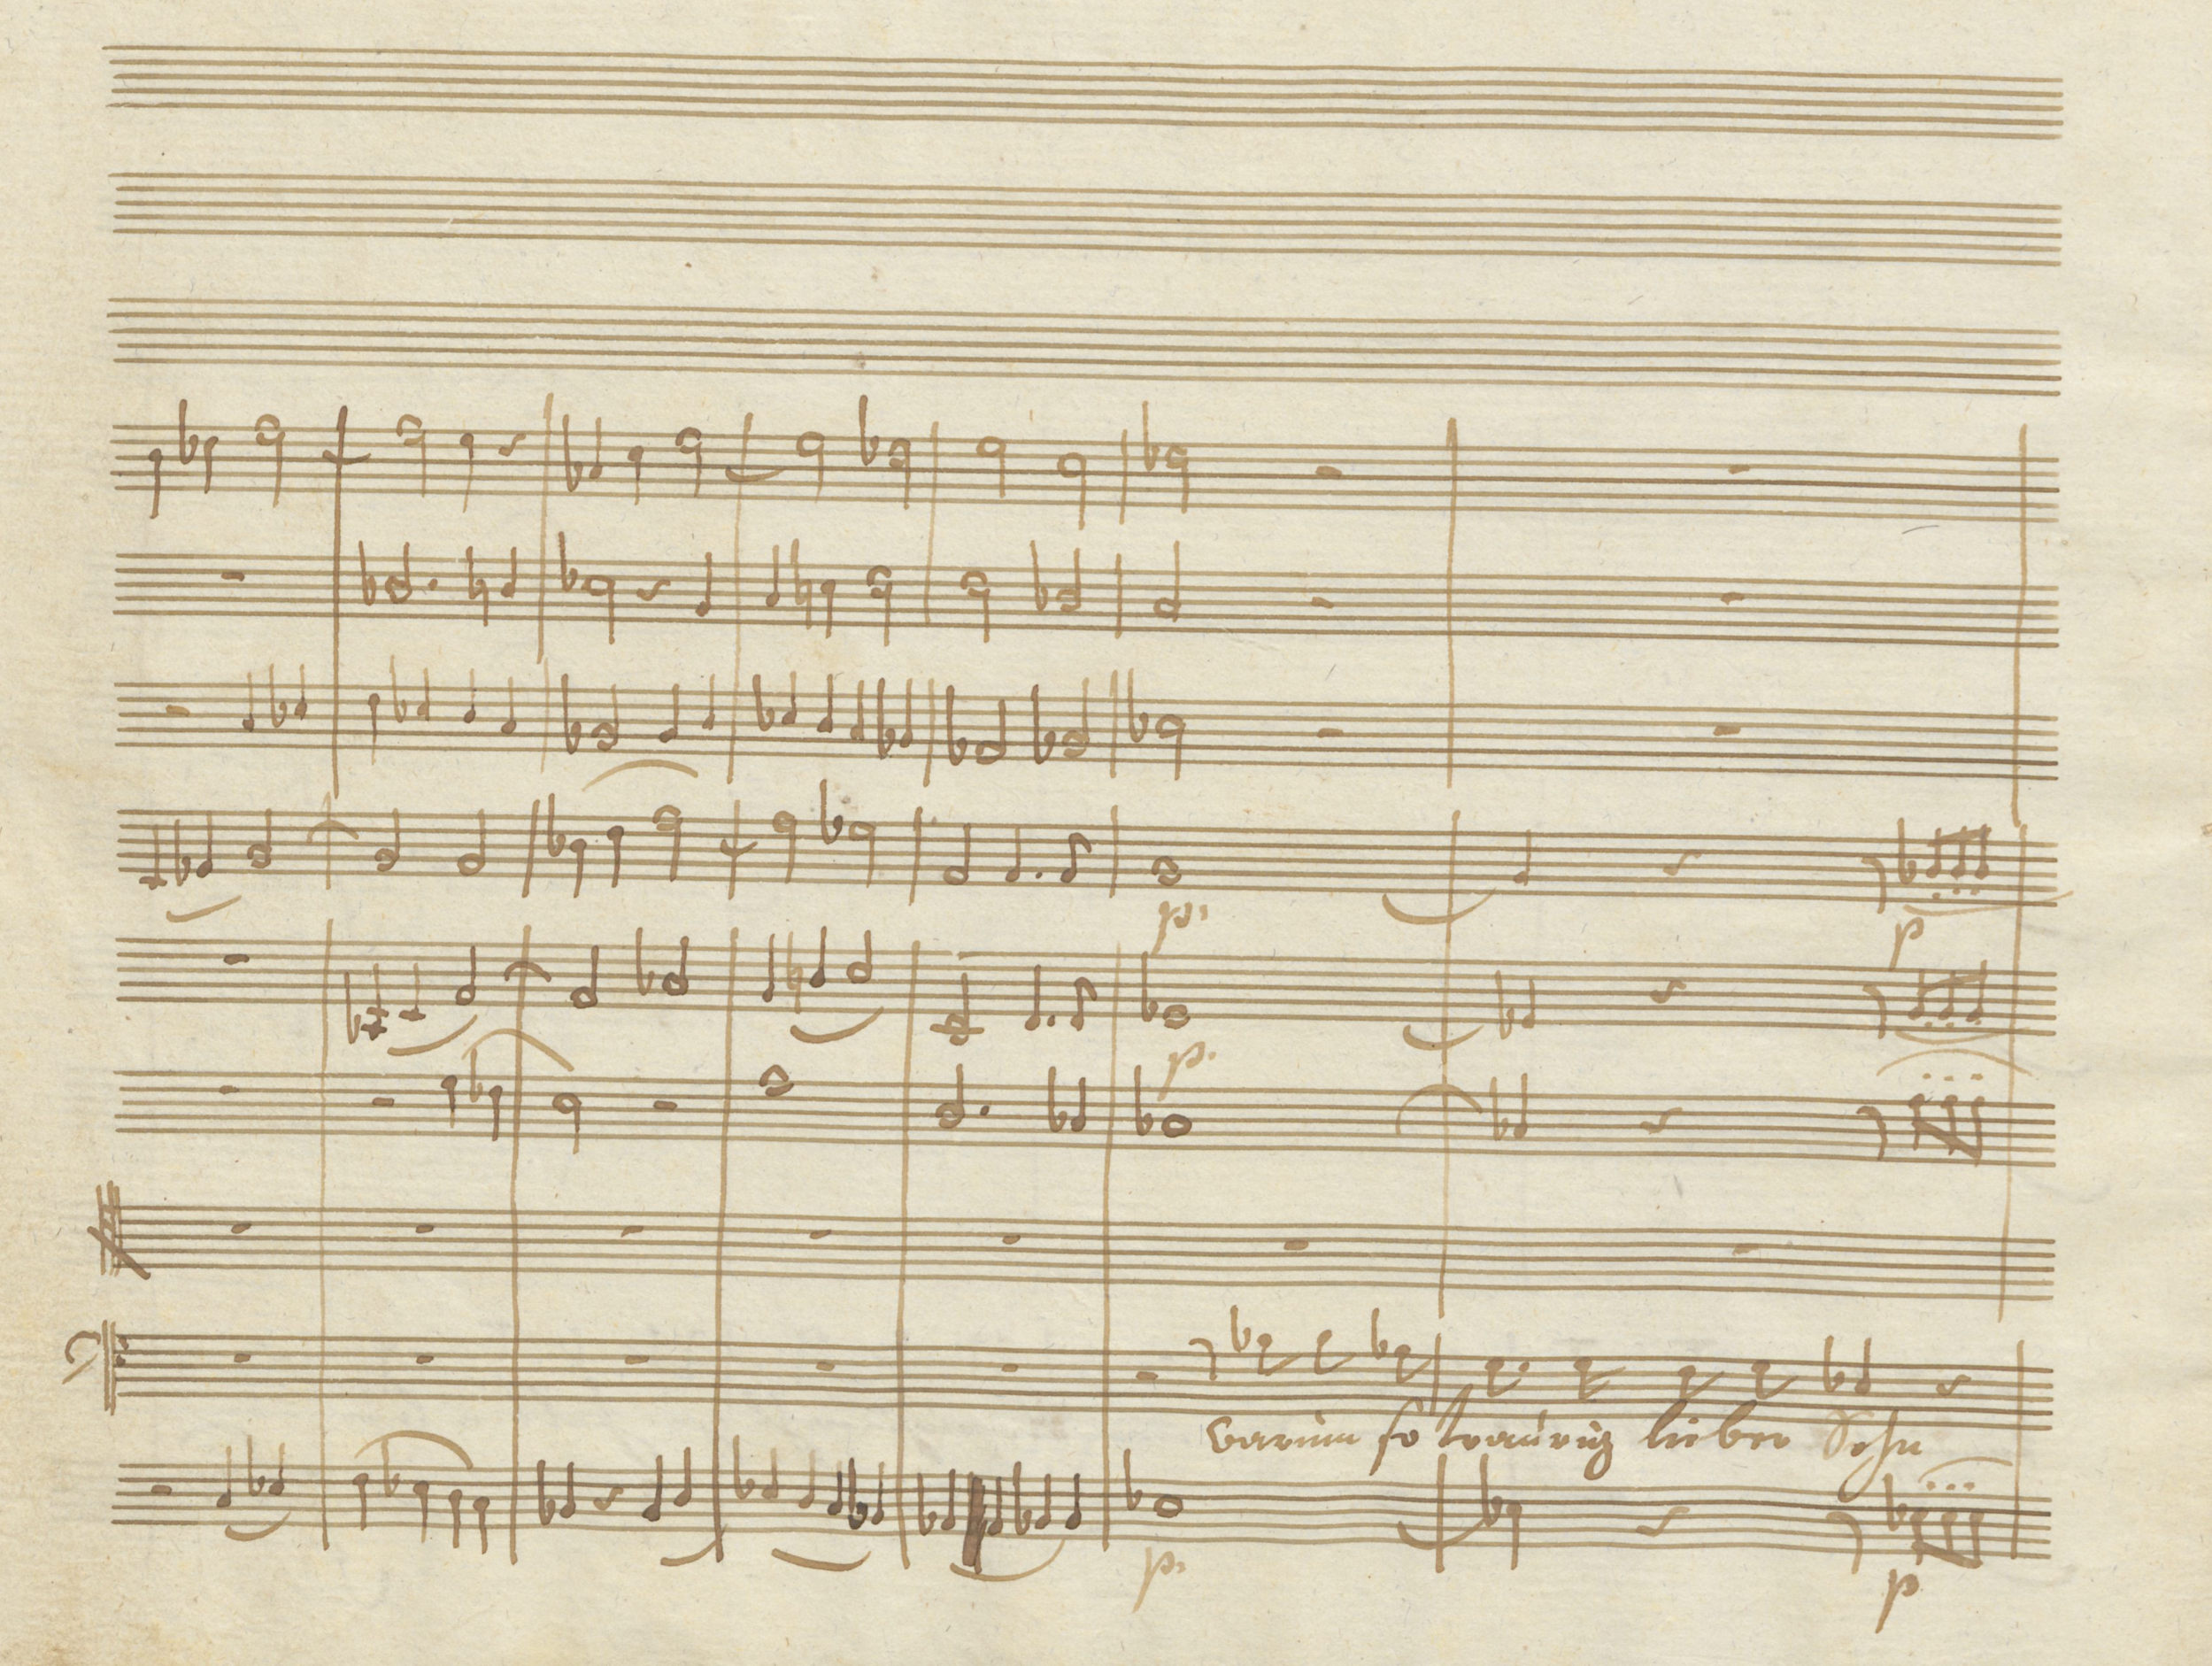 p. p
p.
warum so traurig lieber Sohn
p. p